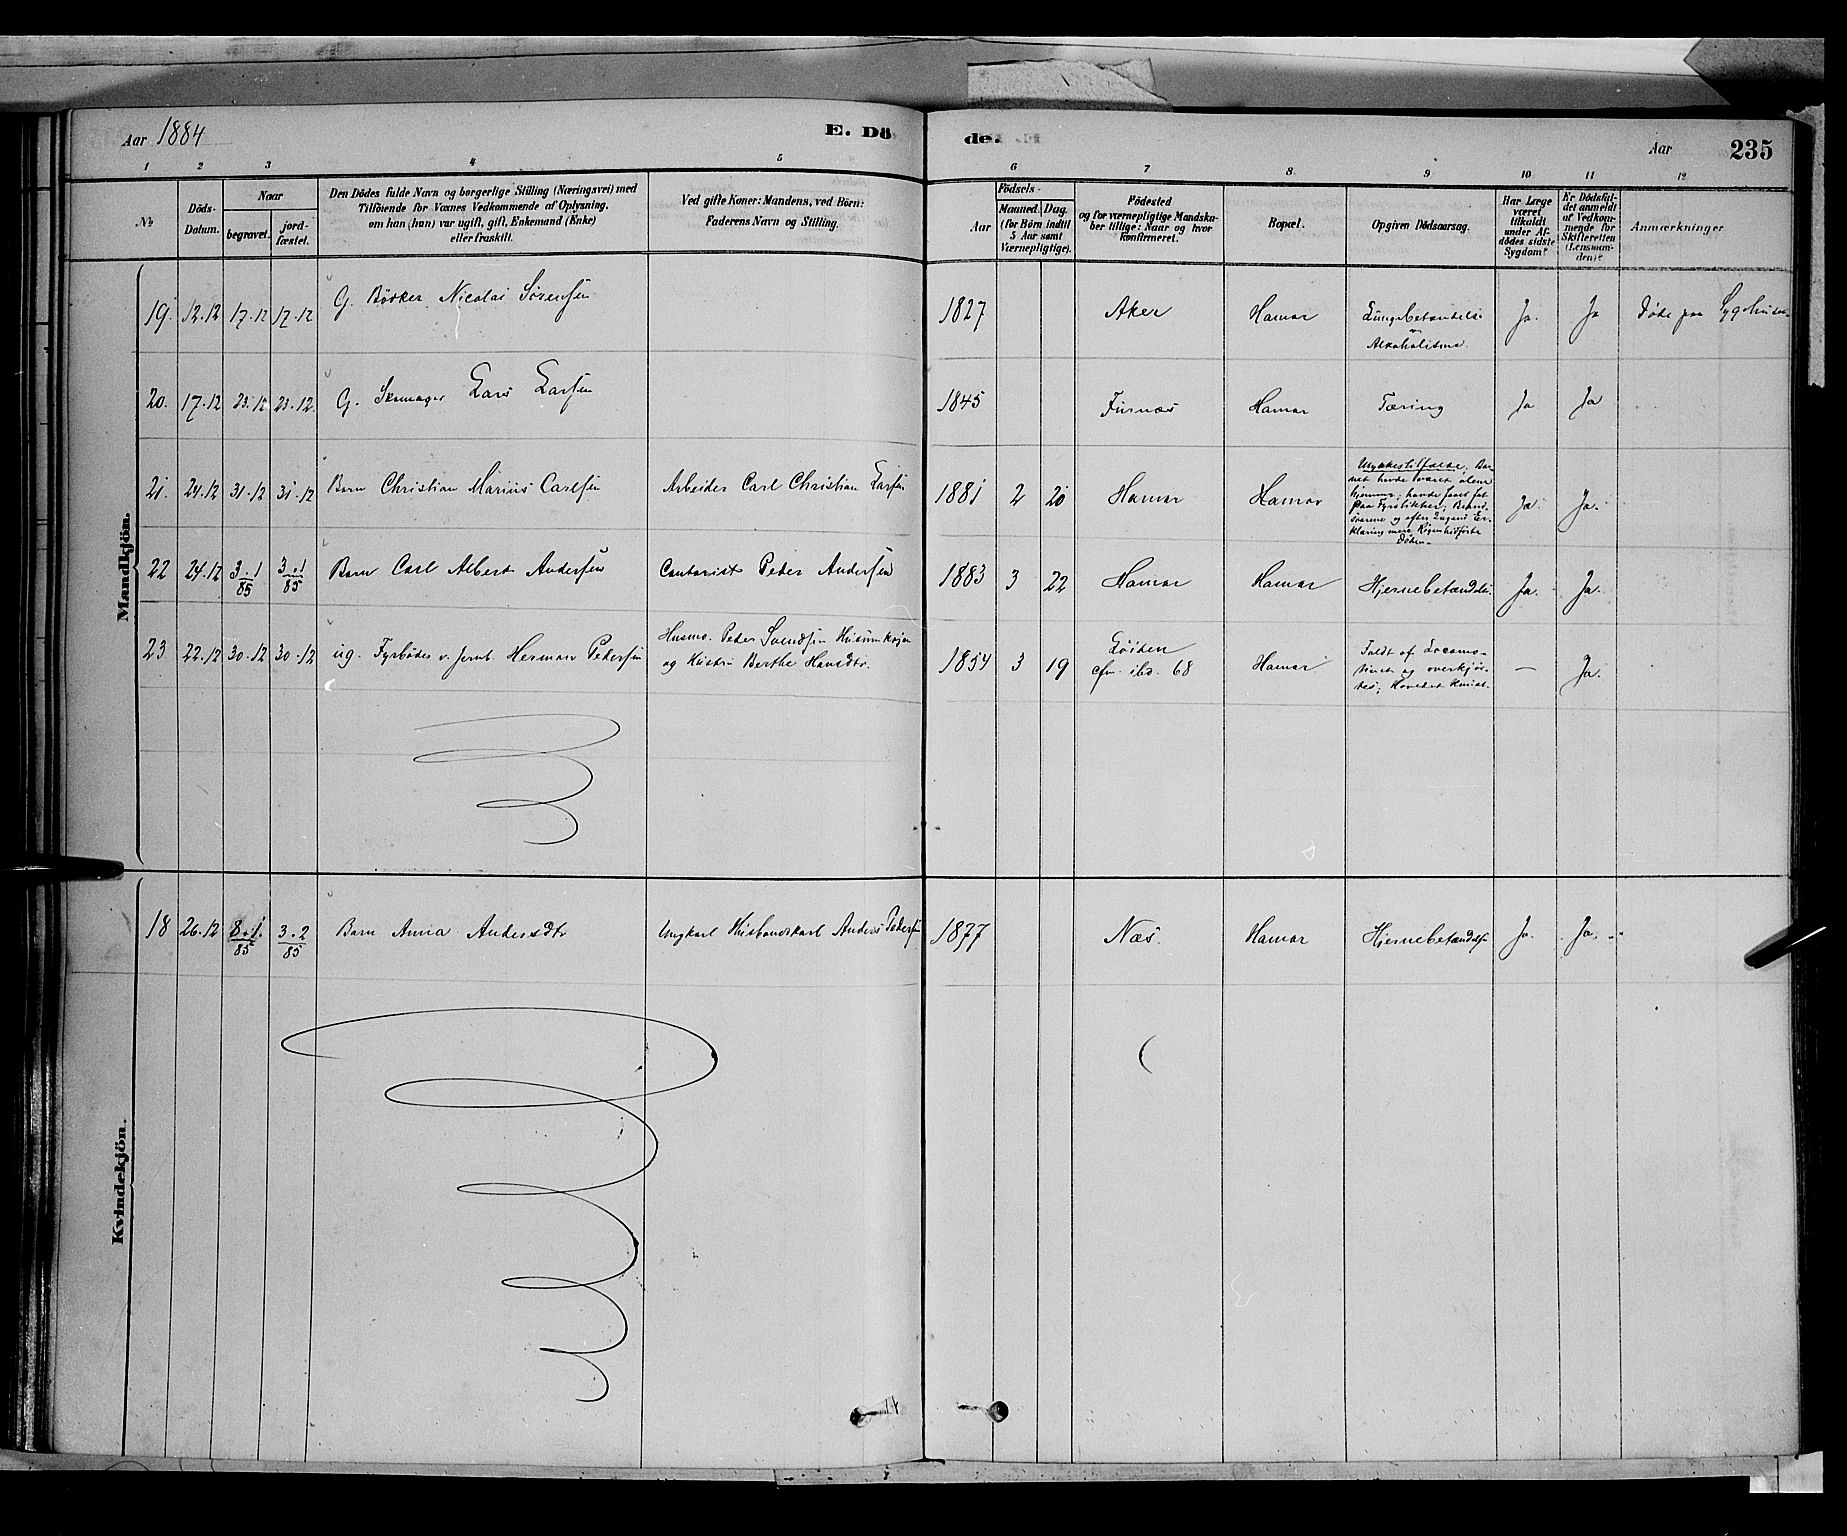 Aar 1884
E. Dö
de.
Aar
235
1 2 3 4 5
6 7 8 9 10 11 12
No
Döds-
Datum.
Naar
begravet.
jord-
fæstet.
Den Dödes fulde Navn og borgerlige Stilling (Næringsvei) med
Tilföiende for Voxnes Vedkommende af Oplysning,
om han (hun) var ugift, gift, Enkemand (Enke)
eller fraskilt.
Ved gifte Koner: Mandens, ved Börn:
Faderens Navn og Stilling.
Födsels-
Aar
Maaned.
Dag.
(for Börn indtil
5 Aar samt
Værnepligtige).
Födested
og for værnepligtige Mandska-
ber tillige: Naar og hvor
konfirmeret.
Bopæl.
Opgiven Dödsaarsag.
Har Læge
været
tilkaldt
under Af-
dödes sidste
Sygdom?
Er Dödsfal-
det anmeldt
af Vedkom-
mende for
Skifteretten
(Lensman-
den)?
Anmærkninger
Mandkjön.
19. 12.12 17.12 17.12 G. Bödker Nicolai Sørensen 1827 Aker Hamar Lungebetændelse
Alkoholisme. Ja. Ja Døde paa Sygehuset
20. 17.12 23.12 23.12. G. Skomager Lars Larsen 1845 Furnæs Hamar Tæring Ja Ja
21. 24.12 31.12 31.12 Barn Christian Marius Carlsen Arbeider Carl Christian Larsen 1881 2 20 Hamar Hamar Ulykkestilfælde; Bar-
net havde været alene
hjemme; havde faaet fat
paa Fyrstikker; Brand-
saarene og efter Lægens Er-
klæring mere Røgen hidførte
Døden. Ja. Ja.
22 24.12 3.1/85 3.1/85 Barn Carl Albert Andersen Contorist Peder Andersen 1883 3 22 Hamar Hamar Hjernebetændelse Ja. Ja.
23 22.12 30.12 30.12 ug. Fyrbøder v. Jernb. Herman Pedersen Husm. Peder Svendsen
og Hustru Berthe Hansdtr. 1854 3 19 Löiten
cfm. ibd. 68 Hamar Faldt af Locomo-
tivet og overkjør-
tes; Hovedet knust. — Ja.
Kvindekjön.
18 26.12 8.1./85 3.2/85 Barn Anna Andersdtr Ungkarl Husbondskarl Anders Pedersen 1877 Næs. Hamar Hjernebetændelse Ja. Ja.